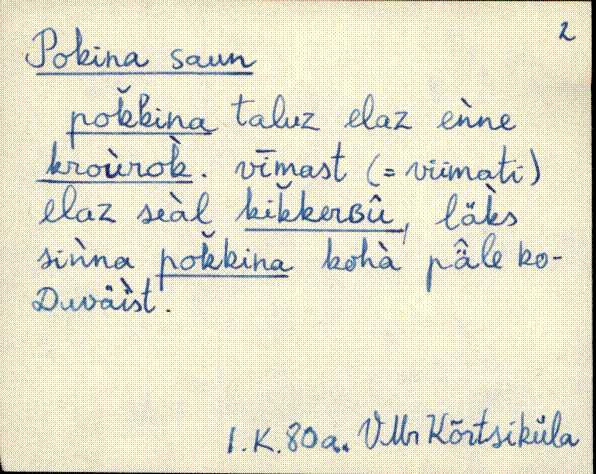 2
Pokina saun
pok̆kina taluz elaz eǹne
kroùrok̀. vīmast (= viimati)
elaz seàl kik̆kerʙû, läk̀s
siǹna pok̆kina kohà pä̂le ko-
ᴅuväìst.
I. K. 80a. VMr Kõrtsiküla